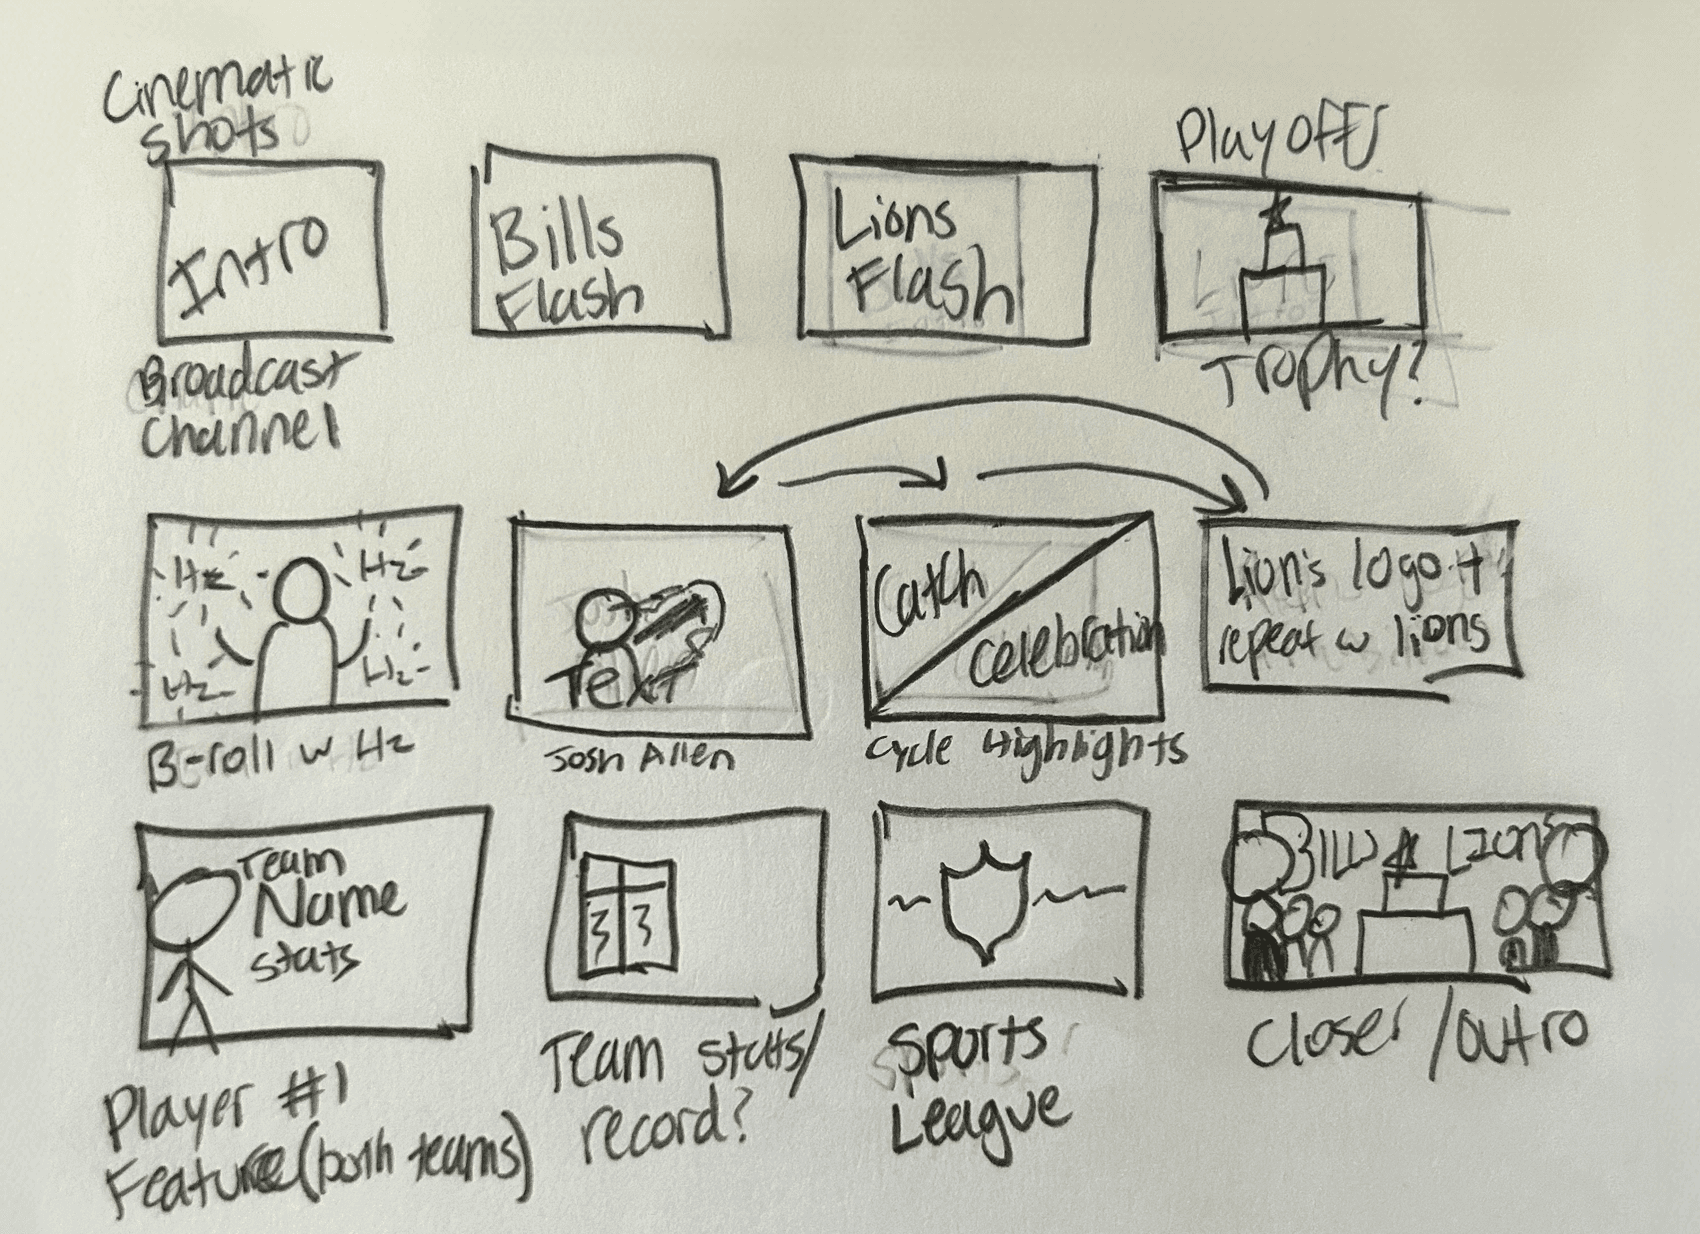 Cinematic
shots
Intro
Broadcast
Channel
Bills
Flash
Lions
Flash
Playoffs
Trophy?
Hz
Hz
Hz
Hz
B-roll w Hz
Text
Josh Allen
Catch
Celebration
Cycle Highlights
Lion's logo +
repeat w lions
Team
Name
stats
Player #1
Feature (both teams)
Team stats/
record?
Sports
League
Bills
Lions
Closer/outro